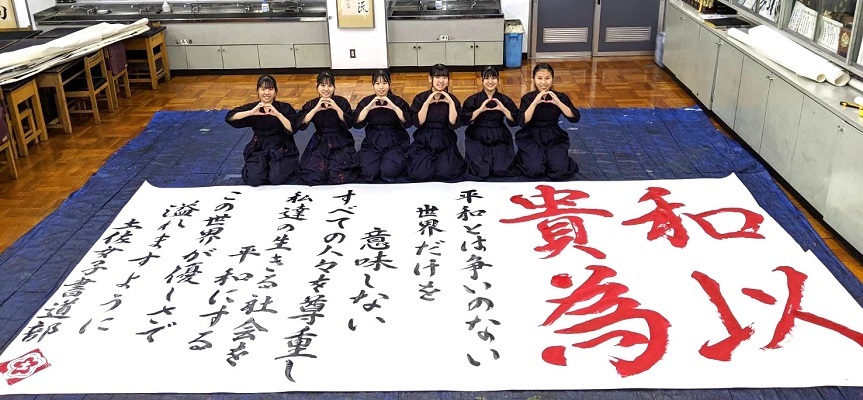 和以
貴為
平和とは争いのない
世界だけを
意味しない
すべての人々を尊重し
私達の生きる社会を
平和にする
この世界が優しさで
溢れますように
土佐女子書道部